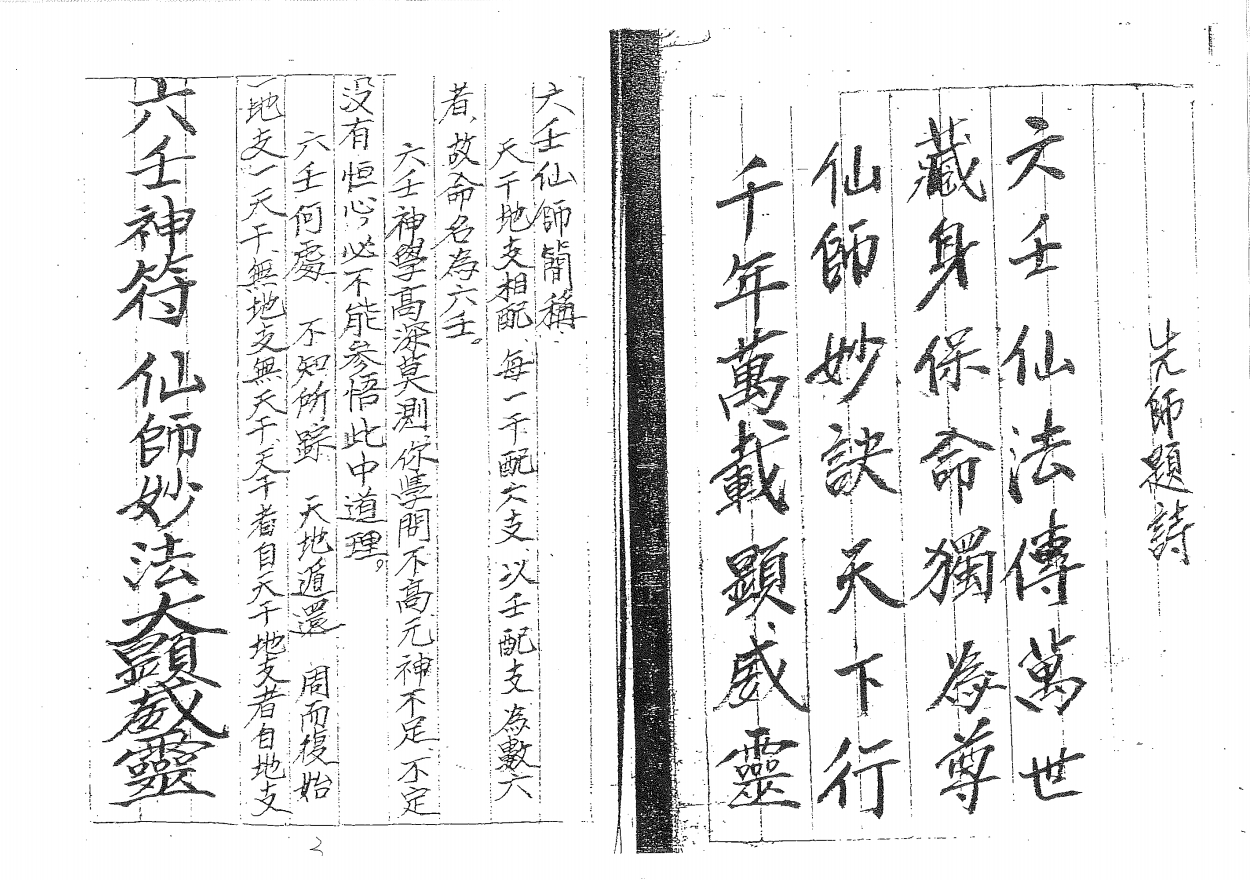 先師題詩
六壬仙法傳萬世
藏身保命獨為尊
仙師妙訣天下行
千年萬載顯威靈
六壬仙師簡稱
天干地支相配、每一干配六支、以壬配支為數六
者、故命名為六壬。
六壬神學高深莫測、你學問不高元神不足、不定
没有恒心、必不能參悟此中道理。
六壬何處 不知所踪 天地遁還 周而復始
一地支一天干、無地支無天干、天干者自天干地支者自地支
六壬神符 仙師妙法大顯威靈
2